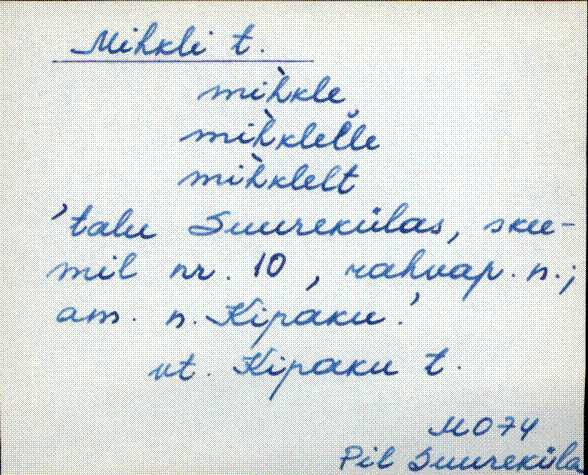 Mihkli t.
mìhkle
mìhklel̆le
mìhklelt
'talu Suurekülas, skee-
mil nr. 10, rahvap. n.;
am. n. Kipaku.'
vt. Kipaku t.
MO74
Pil Suureküla